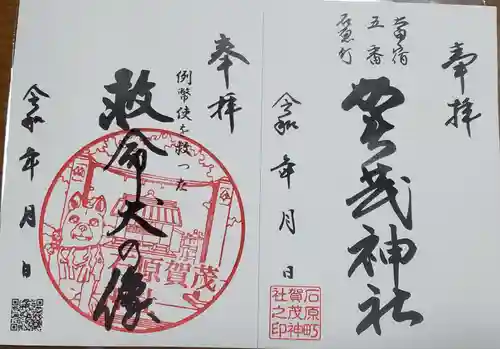 奉拝
太田宿
五番
石原町
賀茂神社
令和 年 月 日
石原町
賀茂神
社之印
奉拝
例幣使を救った
救命犬の像
令和 年 月 日
石原賀茂